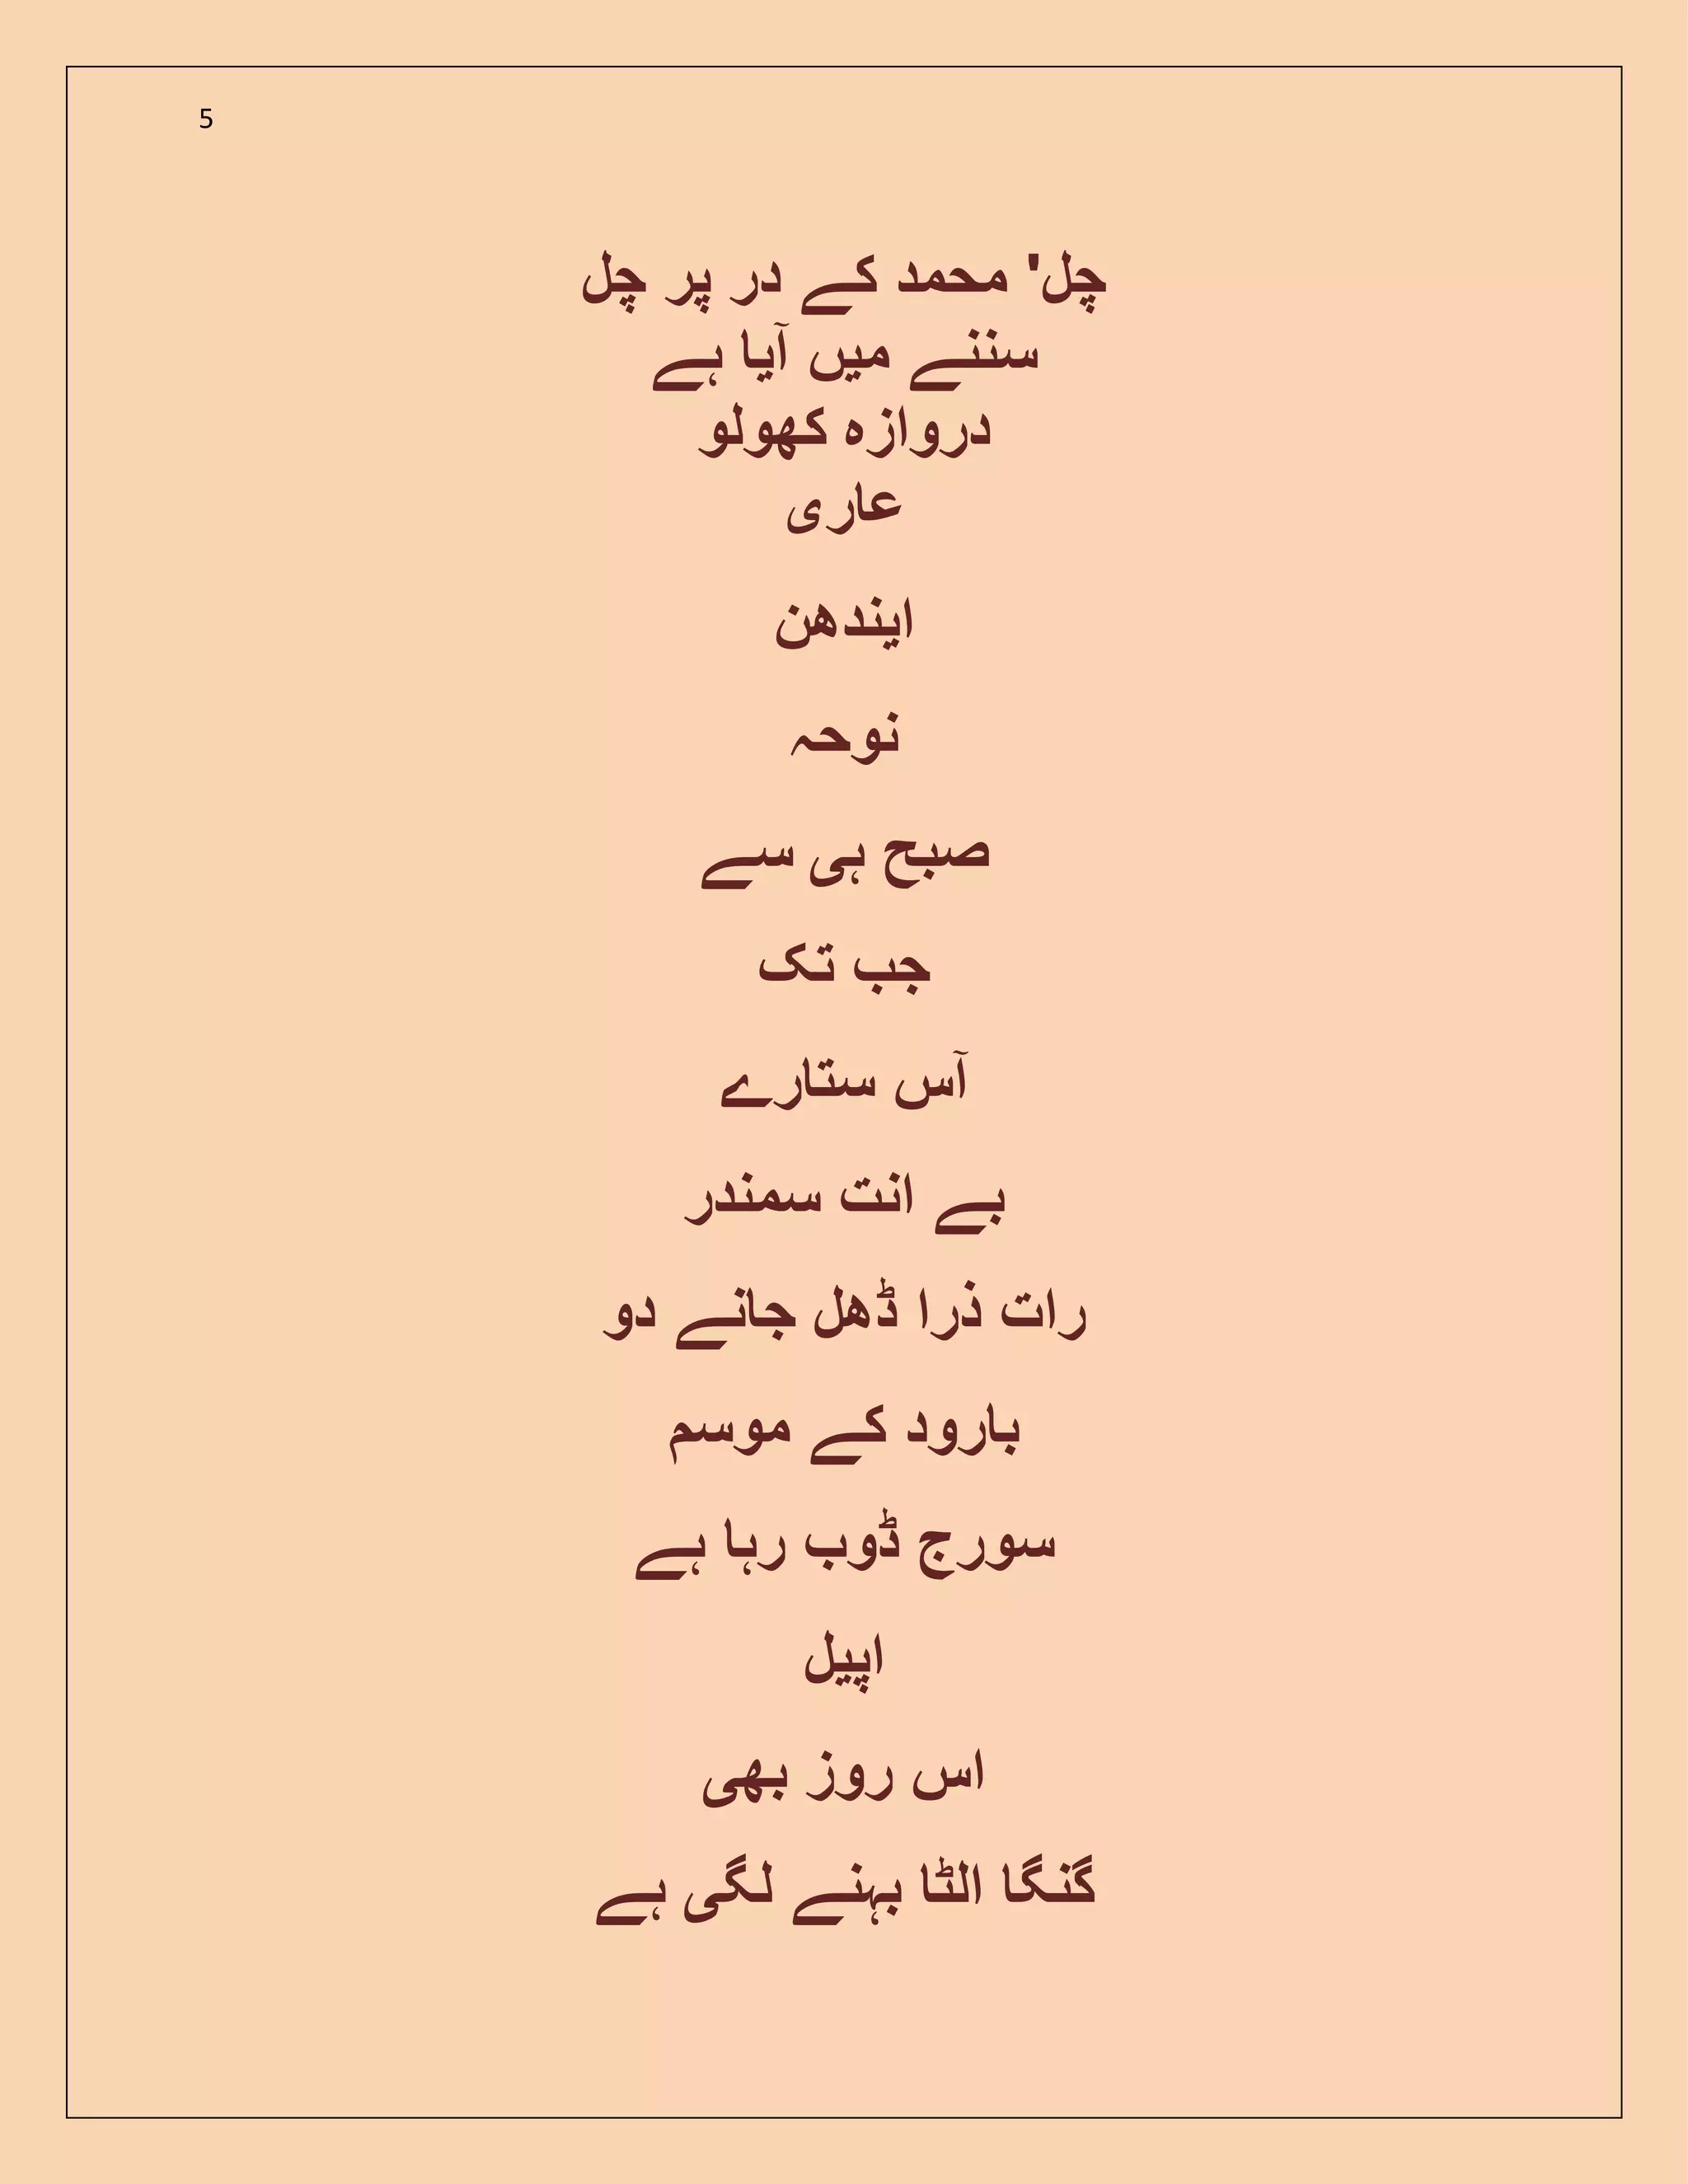 5
چل' محمد کے در پر چل
سننے میں آیا ہے
دروازہ کھولو
عاری
ایندھن
نوحہ
صبح ہی سے
جب تک
آس ستارے
بے انت سمندر
رات ذرا ڈھل جانے دو
بارود کے موسم
سورج ڈوب رہا ہے
اپیل
اس روز بھی
گنگا الٹا بہنے لگی ہے